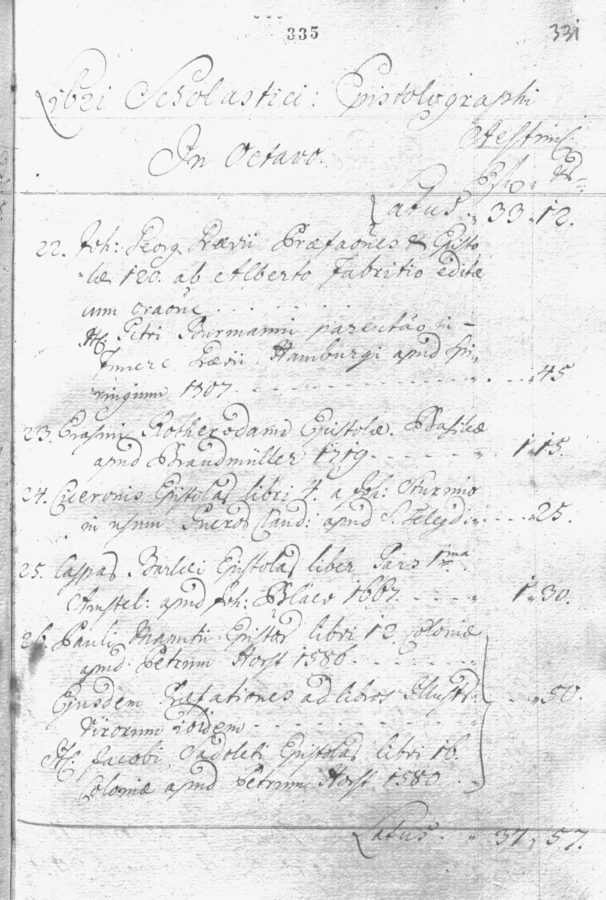 335 331
Libri Scholastici: Epistolographi
In Octavo. Aestim:
Latus. 33. 12.
22. Joh: Georg Grævii Præfaōnes & Episto
læ 120. ab Alberto Fabritio editæ
cum oraōne
It. Petri Burmanni parentaō in
funere Grævii Hamburgi apud
1707. 45
23. Erasmi Rotherodami Epistolæ. Basileæ
apud Brandmüller 1719. 1. 15.
24. Ciceronis Epistolaꝝ libri 4. a Joh: Sturmio
in usum Pueroꝝ Claud: apud S. Telegdi 25.
25. Caspaꝝ Barlæi Epistolaꝝ liber Pars 1ma
Amstel: apud Joh: Blaeu 1667. 1. 30.
26. Pauli Manutii Epistoꝝ libri 12 Coloniæ
apud Petrum Horst 1586.
Ejusdem Præfationes ad libros Illustꝝ 50.
Virorum ibidem
It. Jacobi Sadoleti Epistolaꝝ libri 16.
Coloniæ apud Petrum Horst 1580.
Latus. 37. 57.